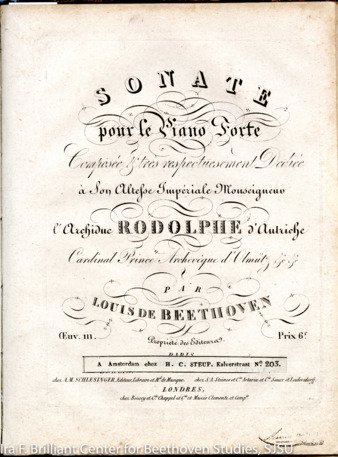 SONATE
pour le Piano Forte
Composée & très respectueusement Dediée
à Son Altesse Impériale Monseigneur
l'Archiduc RODOLPHE d'Autriche
Cardinal Prince Archevêque d'Olmütz &c &c
PAR
LOUIS DE BEETHOVEN
Œuv. 111. Prix 6f
Propriété des Editeurs.
PARIS
A Amsterdam chez H. C. STEUP, Kalverstraat No. 205.
chez A. M. SCHLESINGER, Editeur, Libraire et Md. de Musique. chez S. A. Steiner et Ce. Artaria et Ce. Sauer et Leidesdorf.
LONDRES,
chez Boosey et Ce. Chappel et Ce. et Music Clementi et Comp.
Ira F. Brilliant Center for Beethoven Studies, SJSU